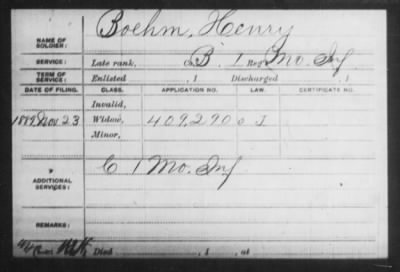 NAME OF SOLDIER: Boehm, Henry
SERVICE: Late rank, Co. B. 1 Reg't Mo. Inf
TERM OF SERVICE: Enlisted , 1 Discharged , 1
DATE OF FILING. CLASS. APPLICATION NO. LAW. CERTIFICATE NO.
Invalid,
1889 Nov 23 Widow, 409,290
Minor,
ADDITIONAL SERVICES: C 1 Mo. Inf
REMARKS:
Died , 1 , at